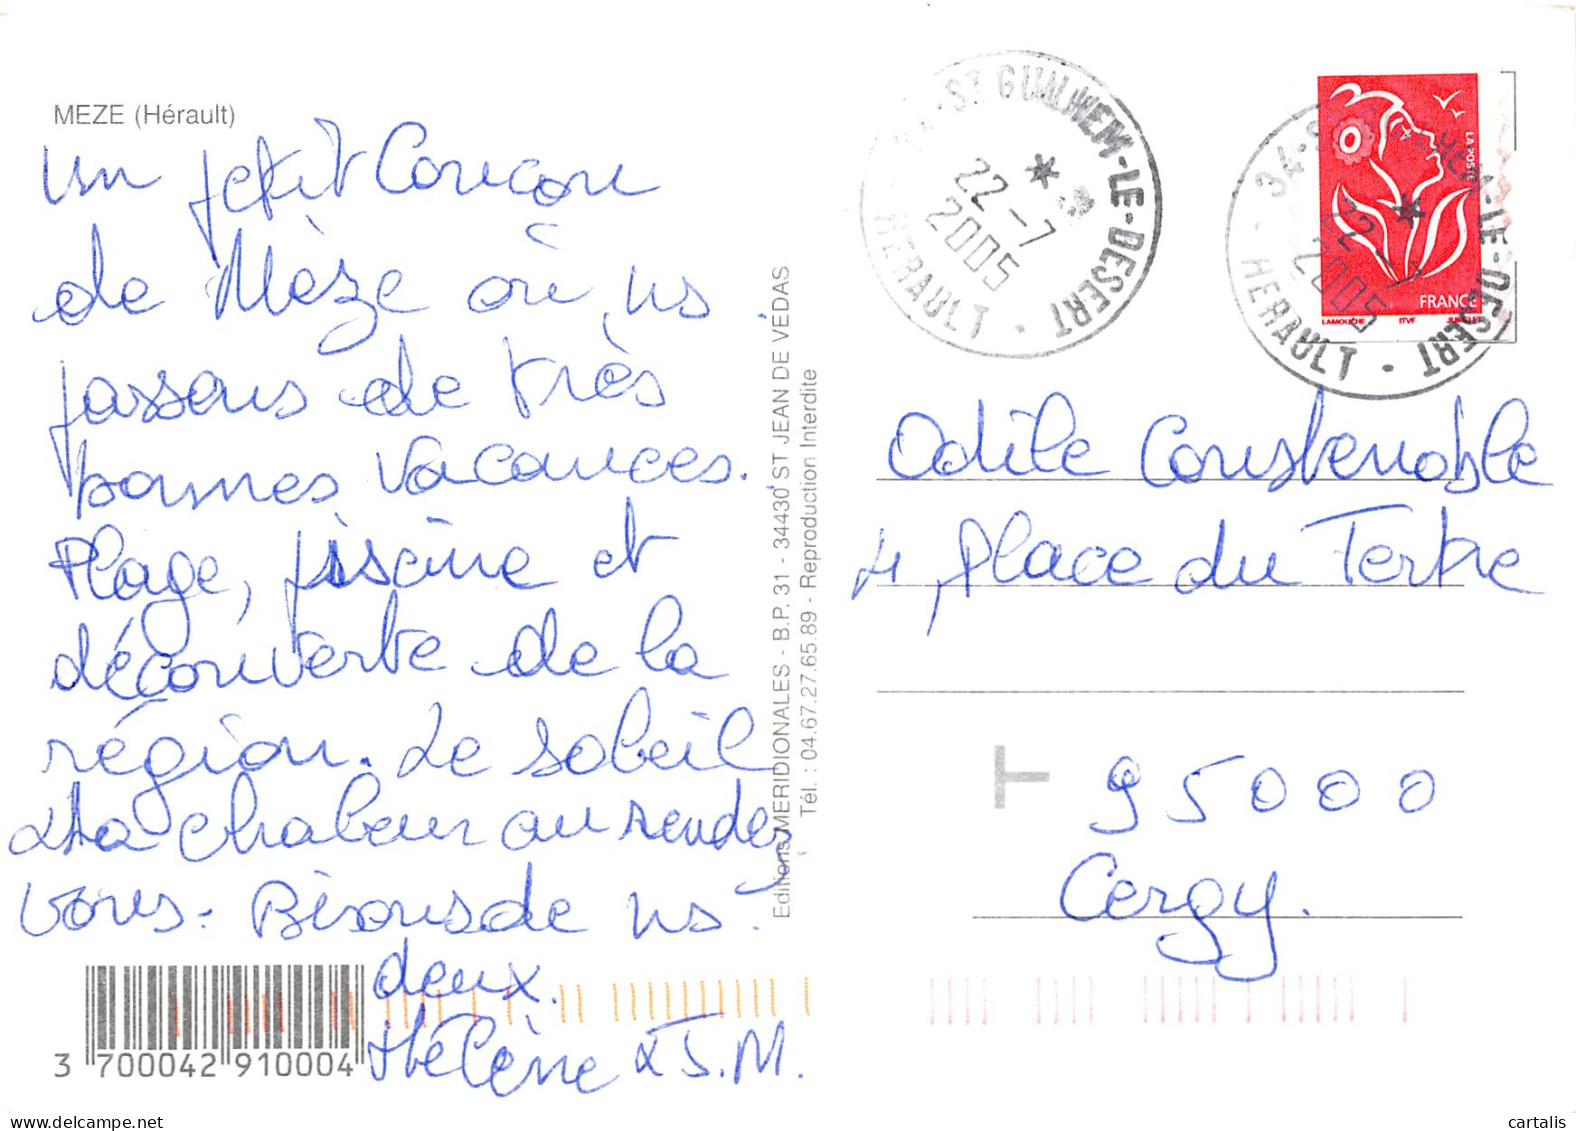 MEZE (Hérault)
Un petit Coucou
de Mèze où ns
passons de très
bonnes vacances.
Plage, piscine et
découverte de la
région. Le soleil
& la chaleur au rendez
vous. Bisous de ns
deux.
Hélène & J.M.
3 700042 910004
Editions MERIDIONALES - B.P. 31 - 34430 ST JEAN DE VEDAS
Tél. : 04.67.27.65.89 - Reproduction Interdite
ST GUILHEM-LE-DESERT
22-7
2005
HERAULT
34-S HEM-LE-DESERT
22-7
2005
HERAULT
LA POSTE
FRANCE
LAMOUCHE ITVF
Odile Constenoble
4, place du Tertre
95000
Cergy.
cartalis
delcampe.net